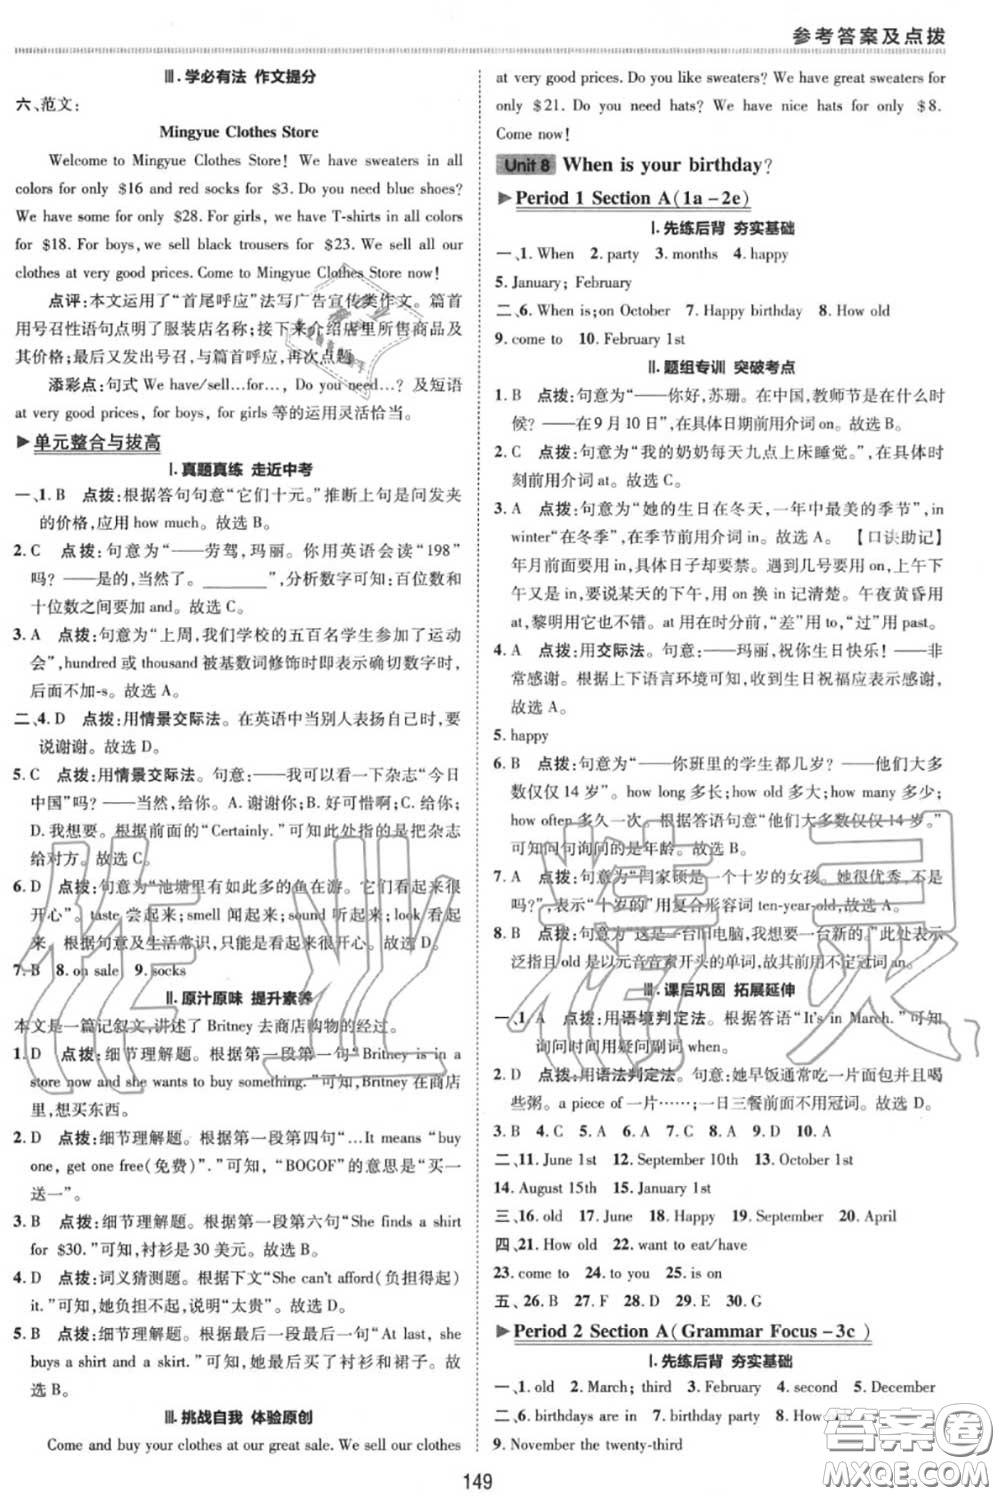 参考答案及点拨
Ⅲ.学必有法 作文提分
六、范文:
Mingyue Clothes Store
Welcome to Mingyue Clothes Store! We have sweaters in all
colors for only $16 and red socks for $3. Do you need blue shoes?
We have some for only $28. For girls, we have T-shirts in all colors
for $18. For boys, we sell black trousers for $23. We sell all our
clothes at very good prices. Come to Mingyue Clothes Store now!
点评:本文运用了“首尾呼应”法写广告宣传类作文。篇首
用号召性语句点明了服装店名称;接下来介绍店里所售商品及
其价格;最后又发出号召,与篇首呼应,再次点题。
添彩点:句式 We have/sell…for…, Do you need…? 及短语
at very good prices, for boys, for girls 等的运用灵活恰当。
单元整合与拔高
Ⅰ.真题真练 走近中考
一、1. B 点拨:根据答句句意“它们十元。”推断上句是问发夹
的价格,应用 how much。故选 B。
2. C 点拨:句意为“——劳驾,玛丽。你用英语会读“198”
吗? ——是的,当然了。________”,分析数字可知:百位数和
十位数之间要加 and。故选 C。
3. A 点拨:句意为“上周,我们学校的五百名学生参加了运动
会”,hundred 或 thousand 被基数词修饰时即表示确切数字时,
后面不加-s。故选 A。
二、4. D 点拨:用情景交际法。在英语中当别人表扬自己时,要
说谢谢。故选 D。
5. C 点拨:用情景交际法。句意:——我可以看一下杂志“今日
中国”吗? ——当然,给你。A. 谢谢你;B. 好可惜啊;C. 给你;
D. 我想要。根据前面的“Certainly.”可知此处指的是把杂志
给对方。故选 C。
6. D 点拨:句意为“池塘里有如此多的鱼在游。它们看起来很
开心”。taste 尝起来;smell 闻起来;sound 听起来;look 看起
来。根据句意及生活常识,只能是看起来很开心。故选 D。
7. B 8. on sale 9. socks
Ⅱ.原汁原味 提升素养
本文是一篇记叙文,讲述了 Britney 去商店购物的经过。
1. D 点拨:细节理解题。根据第一段第一句“Britney is in a
store now and she wants to buy something.”可知,Britney 在商店
里,想买东西。
2. D 点拨:细节理解题。根据第一段第四句“…It means “buy
one, get one free(免费)”.”可知,“BOGOF”的意思是“买一
送一”。
3. B 点拨:细节理解题。根据第一段第六句“She finds a shirt
for $30.”可知,衬衫是 30 美元。故选 B。
4. D 点拨:词义猜测题。根据下文“She can't afford(负担得起)
it.”可知,她负担不起,说明“太贵”。故选 D。
5. B 点拨:根据最后一段最后一句“At last, she
buys a shirt and a skirt.”可知,她最后买了衬衫和裙子。故
选 B。
Ⅲ.挑战自我 体验原创
Come and buy your clothes at our great sale. We sell our clothes
at very good prices. Do you like sweaters? We have great sweaters for
only $21. Do you need hats? We have nice hats for only $8.
Come now!
Unit 8 When is your birthday?
Period 1 Section A(1a-2e)
Ⅰ.先练后背 夯实基础
一、1. When 2. party 3. months 4. happy
5. January; February
二、6. When is;on October 7. Happy birthday 8. How old
9. come to 10. February 1st
Ⅱ.题组专训 突破考点
1. B 点拨:句意为“——你好,苏珊。在中国,教师节是在什么时
候? ——在 9 月 10 日”,在具体日期前用介词 on。故选 B。
2. C 点拨:句意为“我的奶奶每天九点上床睡觉。”,在具体时
刻前用介词 at。故选 C。
3. A 点拨:句意为“她的生日在冬天,一年中最美的季节”,in
winter“在冬季”,在季节前用介词 in。故选 A。 【口诀助记】
年月前面要用 in,具体日子却要禁。遇到几号要用 on,上午下
午又是 in。要说某天的下午,用 on 换 in 记清楚。午夜黄昏用
at,黎明用它也不错。at 用在时分前,“差”用 to,“过”用 past。
4. A 点拨:用交际法。句意:——玛丽,祝你生日快乐! ——
非常感谢。根据上下语言环境可知,收到生日祝福应表示感谢,
故选 A。
5. happy
6. B 点拨:句意为“——你班里的学生都几岁? ——他们大多
数仅仅 14 岁”。how long 多长;how old 多大;how many 多少;
how often 多久一次。根据答语句意“他们大多数仅仅 14 岁。”
可知问句询问的是年龄。故选 B。
7. A 点拨:句意为“闫家硕是一个十岁的女孩。她很优秀,不是
吗?”,表示“十岁的”用复合形容词 ten-year-old。故选 A。
8. B 点拨:句意为“这是一台旧电脑,我想要一台新的。”此处表示
泛指且 old 是以元音音素开头的单词,故用不定冠词 an。故选 B。
Ⅲ.课后巩固 拓展延伸
一、1. A 点拨:用语境判定法。根据答语“It's in March.”可知
询问时间用疑问副词 when。
2. D 点拨:用语法判定法。句意:她早饭通常吃一片面包和一
些粥。a piece of 一片……;一日三餐前不用冠词。故选 D。
3. B 4. C 5. A 6. C 7. D 8. D 9. D 10. A
二、11. June 1st 12. September 10th 13. October 1st
14. August 15th 15. January 1st
三、16. old 17. June 18. Happy 19. September 20. April
四、21. How old 22. want to eat/have
23. come to 24. to you 25. is on
五、26. B 27. F 28. D 29. E 30. G
Period 2 Section A(Grammar Focus-3c)
Ⅰ.先练后背 夯实基础
一、1. old 2. March; third 3. February 4. busy 5. December
二、6. birthdays are in 7. birthday party 8. How old
9. November the twenty-third
149
作业精灵
答案圈
MXQE.COM